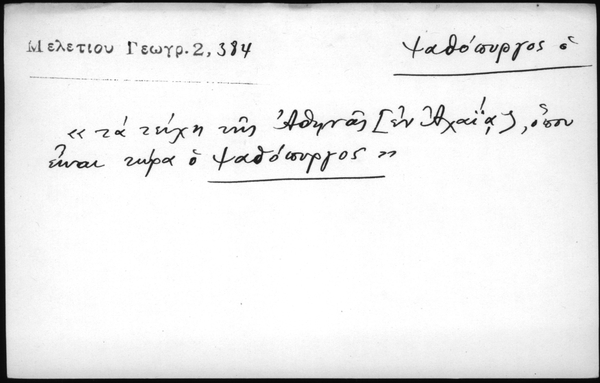 Μελετίου Γεωγρ. 2, 384
Ψαθόπυργος ὁ
« τὰ τείχη τῆς Ἀθηνᾶς [ἐν Ἀχαΐᾳ], ὅπου
εἶναι τώρα ὁ Ψαθόπυργος »